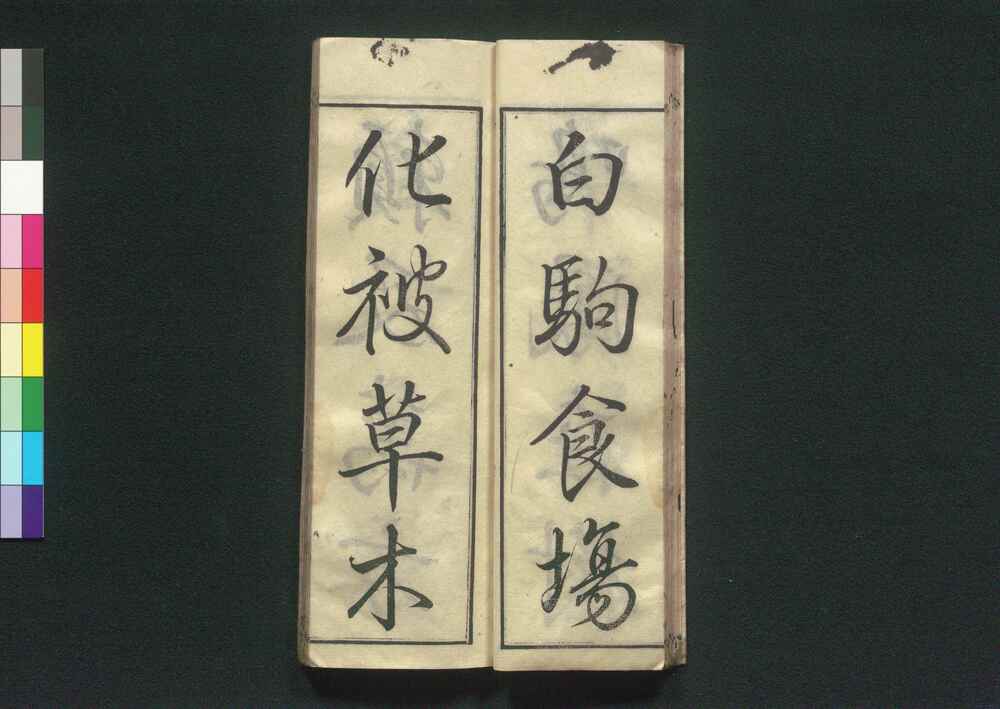 白駒食場
化被草木